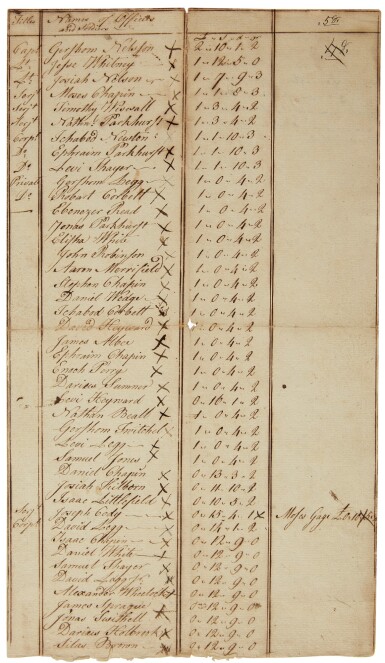 Titles Names of Officers
and Soldiers
Capt Gershom Nelson x 2 - 10 - 1 - 2
Lt Jesse Whitney x 1 - 12 - 5 - 0
Lt Josiah Nelson x 1 - 7 - 9 - 3
Serjt Moses Chapin x 1 - 1 - 8 - 3
Serjt Timothy Wiswall x 1 - 3 - 4 - 2
Serjt Nathn Parkhurst x 1 - 3 - 4 - 2
Corpl Ichabod Newton 1 - 1 - 10 - 3
Do Ephraim Parkhurst x 1 - 1 - 10 - 3
Do Levi Thayer x 1 - 1 - 10 - 3
Privat Gershom Legg x 1 - 0 - 4 - 2
Do Robart Corbett x 1 - 0 - 4 - 2
Ebenezer Read x 1 - 0 - 4 - 2
Jonas Parkhurst x 1 - 0 - 4 - 2
Elisha White x 1 - 0 - 4 - 2
John Robinson x 1 - 0 - 4 - 2
Aaron Merrifield x 1 - 0 - 4 - 2
Stephen Chapin 1 - 0 - 4 - 2
Daniel Wedge x 1 - 0 - 4 - 2
Ichabod Corbett x 1 - 0 - 4 - 2
David Heyward x 1 - 0 - 4 - 2
James Albee x 1 - 0 - 4 - 2
Ephraim Chapin x 1 - 0 - 4 - 2
Enoch Perry x 1 - 0 - 4 - 2
Darius Sumner x 1 - 0 - 4 - 2
Levi Heyward x 0 - 16 - 1 - 2
Nathan Beall x 1 - 0 - 4 - 2
Gershom Twitchel x 1 - 0 - 4 - 2
Levi Legg x 1 - 0 - 4 - 2
Samuel Jones x 1 - 0 - 4 - 2
Daniel Chapin x 0 - 13 - 3 - 2
Josiah Kilborn x 0 - 11 - 10 - 2
Isaac Littlefield x 0 - 10 - 3 - 2
Serjt Joseph Cody x 0 - 15 - 4 - 1 x Moses Gage £0 - 10
Corpl David Legg x 0 - 14 - 1 - 2
Isaac Chapin x 0 - 12 - 9 - 0
Daniel White x 0 - 12 - 9 - 0
Samuel Thayer x 0 - 12 - 9 - 0
David Legg Jr x 0 - 12 - 9 - 0
Alexander Wheelock x 0 - 12 - 9 - 0
James Sprague x 0 - 12 - 9 - 0
Jonas Twichell x 0 - 12 - 9 - 0
Darius Holbrook x 0 - 12 - 9 - 0
Silas Brown x 0 - 12 - 9 - 0